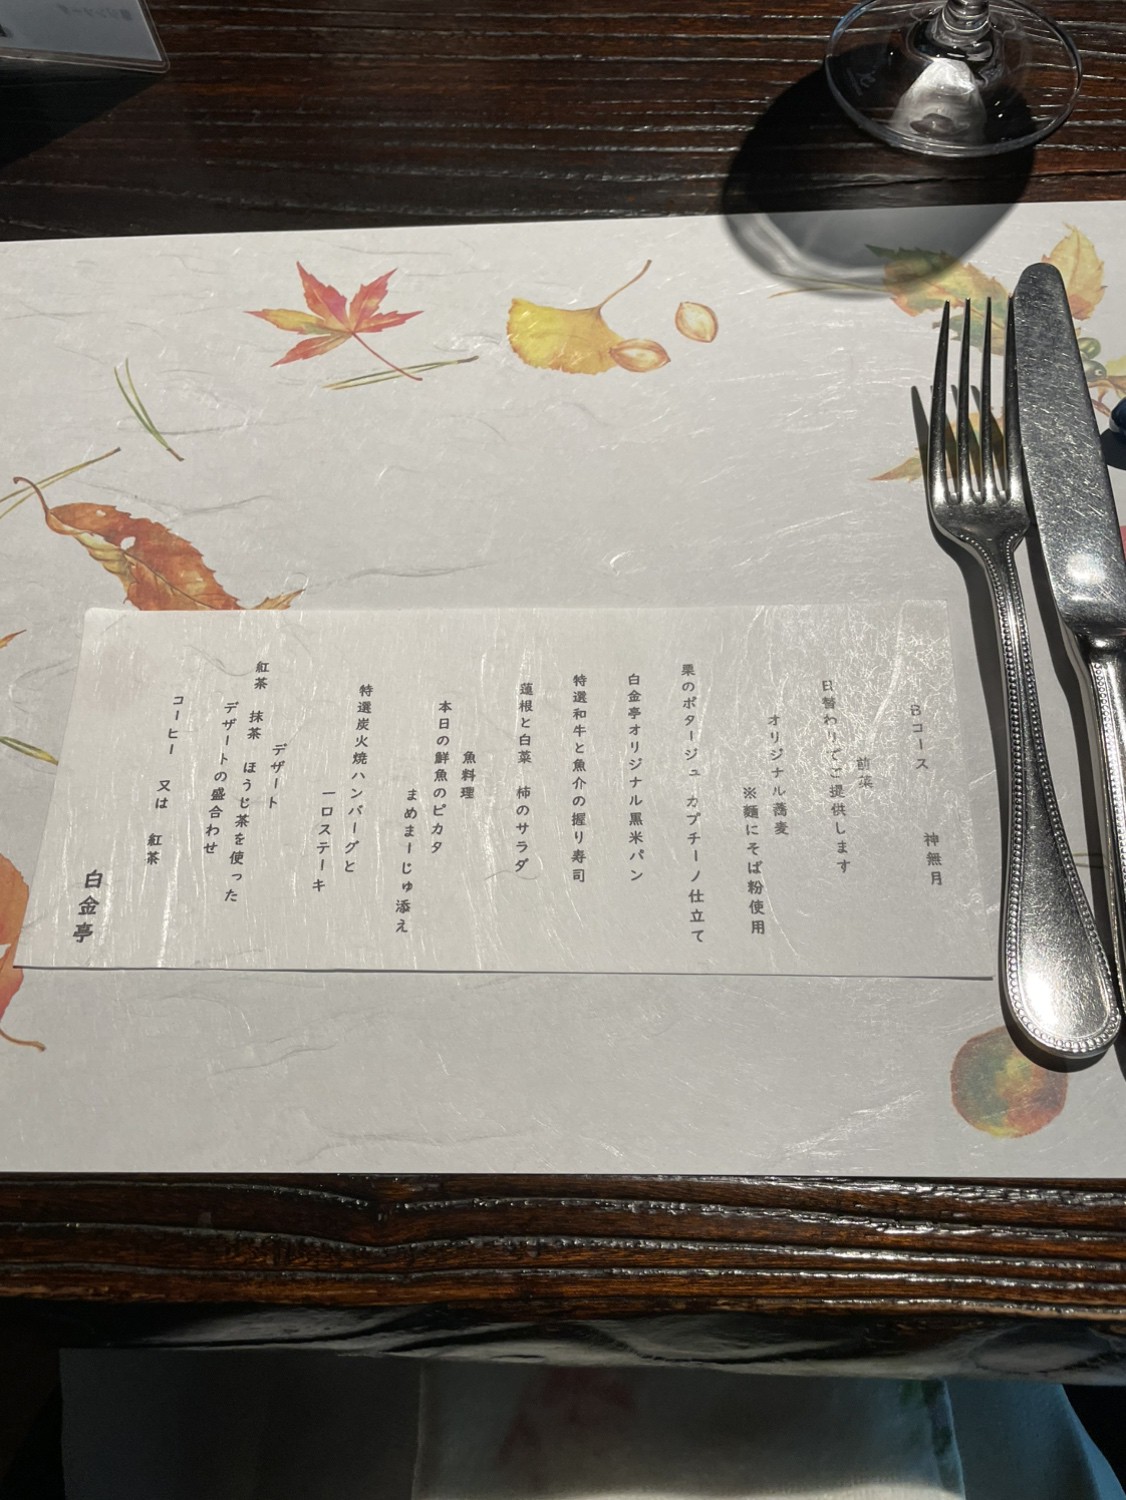 神無月
Bコース
前菜
日替わりでご提供します
オリジナル蕎麦
※麺にそば粉使用
栗のポタージュ カプチーノ仕立て
白金亭オリジナル黒米パン
特選和牛と魚介の握り寿司
蓮根と白菜 柿のサラダ
魚料理
本日の鮮魚のピカタ
まめまーじゅ添え
特選炭火焼ハンバーグと
一口ステーキ
デザート
紅茶 抹茶 ほうじ茶を使った
デザートの盛合わせ
コーヒー 又は 紅茶
白金亭